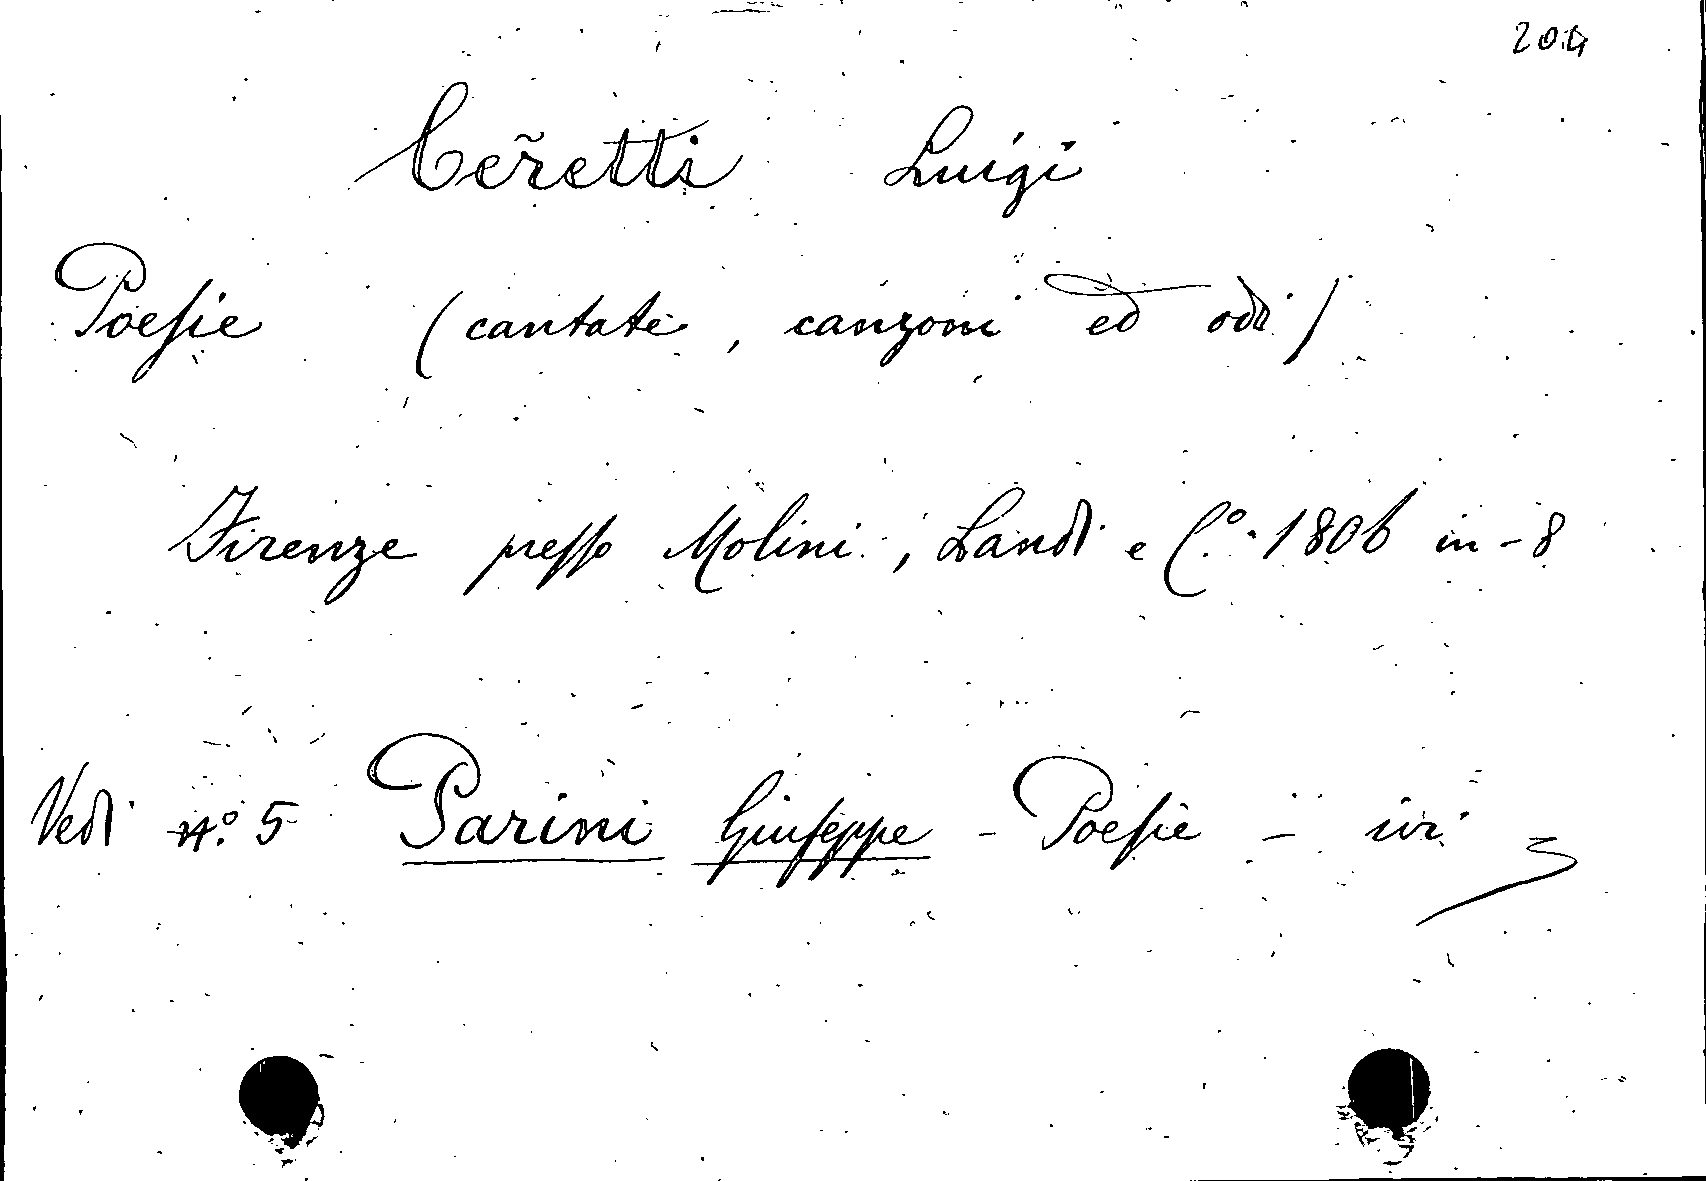 204
Cer̃etti Luigi
Poesie (cantate, canzoni ed odi)
Firenze presso Molini, Landi e C.º 1806 in-8
Vedi n.º 5 Parini Giuseppe - Poesie - ivi